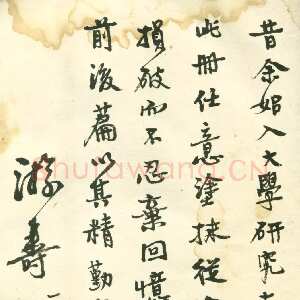 昔余始入大學研究
此冊任意塗抹從
損破而不忍棄回憶
前後篇以其精勤
游壽
shufawang.CN